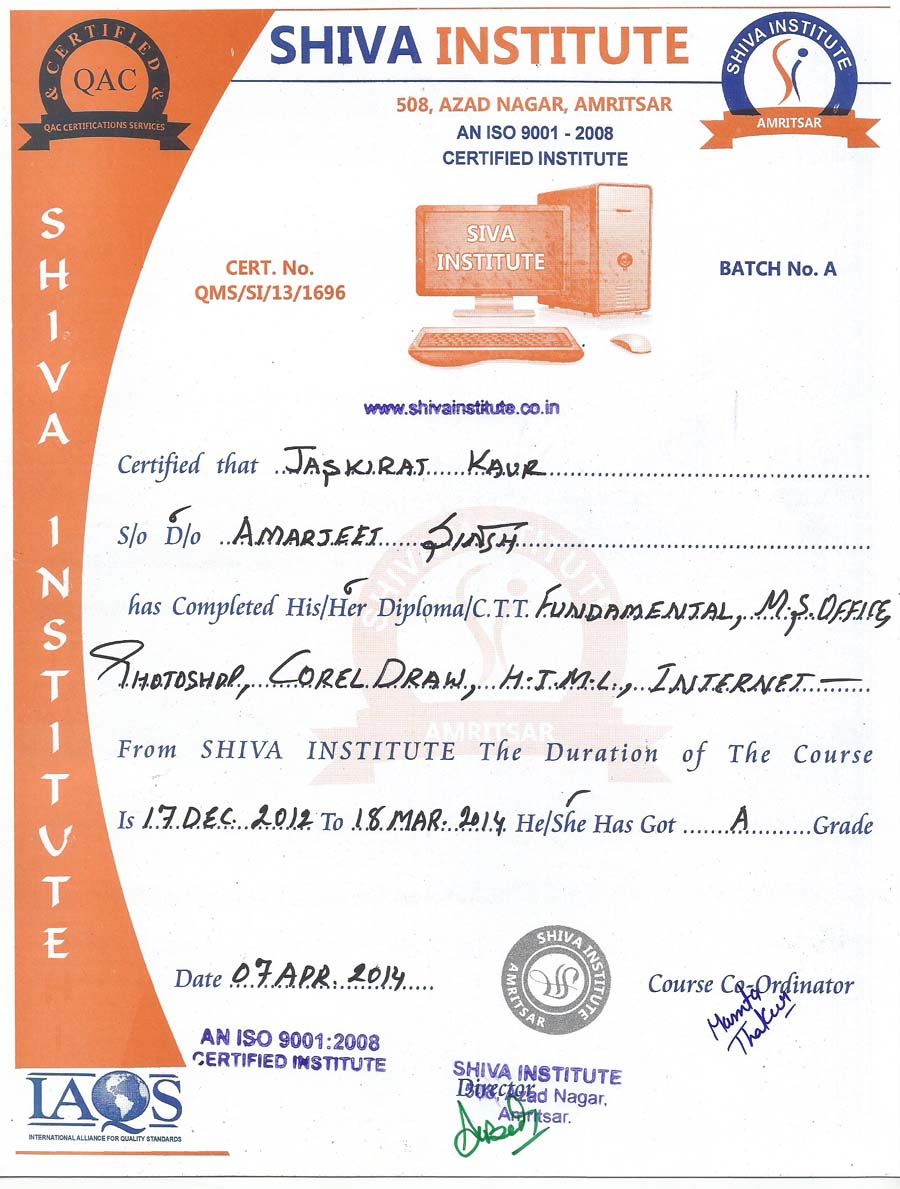 & CERTIFIED &
QAC
QAC CERTIFICATIONS SERVICES
SHIVA INSTITUTE
508, AZAD NAGAR, AMRITSAR
AN ISO 9001 - 2008
CERTIFIED INSTITUTE
SHIVA INSTITUTE
AMRITSAR
SHIVA INSTITUTE
SIVA
INSTITUTE
CERT. No.
QMS/SI/13/1696
BATCH No. A
www.shivainstitute.co.in
Certified that JASKIRAT KAUR
S/o D/o AMARJEET SINGH
has Completed His/Her Diploma/C.T.T. FUNDAMENTAL, M.S.OFFICE,
PHOTOSHOP, COREL DRAW, H.T.M.L., INTERNET —
SHIVA INSTITUTE
AMRITSAR
From SHIVA INSTITUTE The Duration of The Course
Is 17 DEC. 2012 To 18 MAR. 2014 He/She Has Got A Grade
Date 07 APR. 2014
SHIVA INSTITUTE
AMRITSAR
Course Co-Ordinator
Mamta
Thakur
AN ISO 9001:2008
CERTIFIED INSTITUTE
SHIVA INSTITUTE
Director
508, Azad Nagar,
Amritsar.
IAQS
INTERNATIONAL ALLIANCE FOR QUALITY STANDARDS